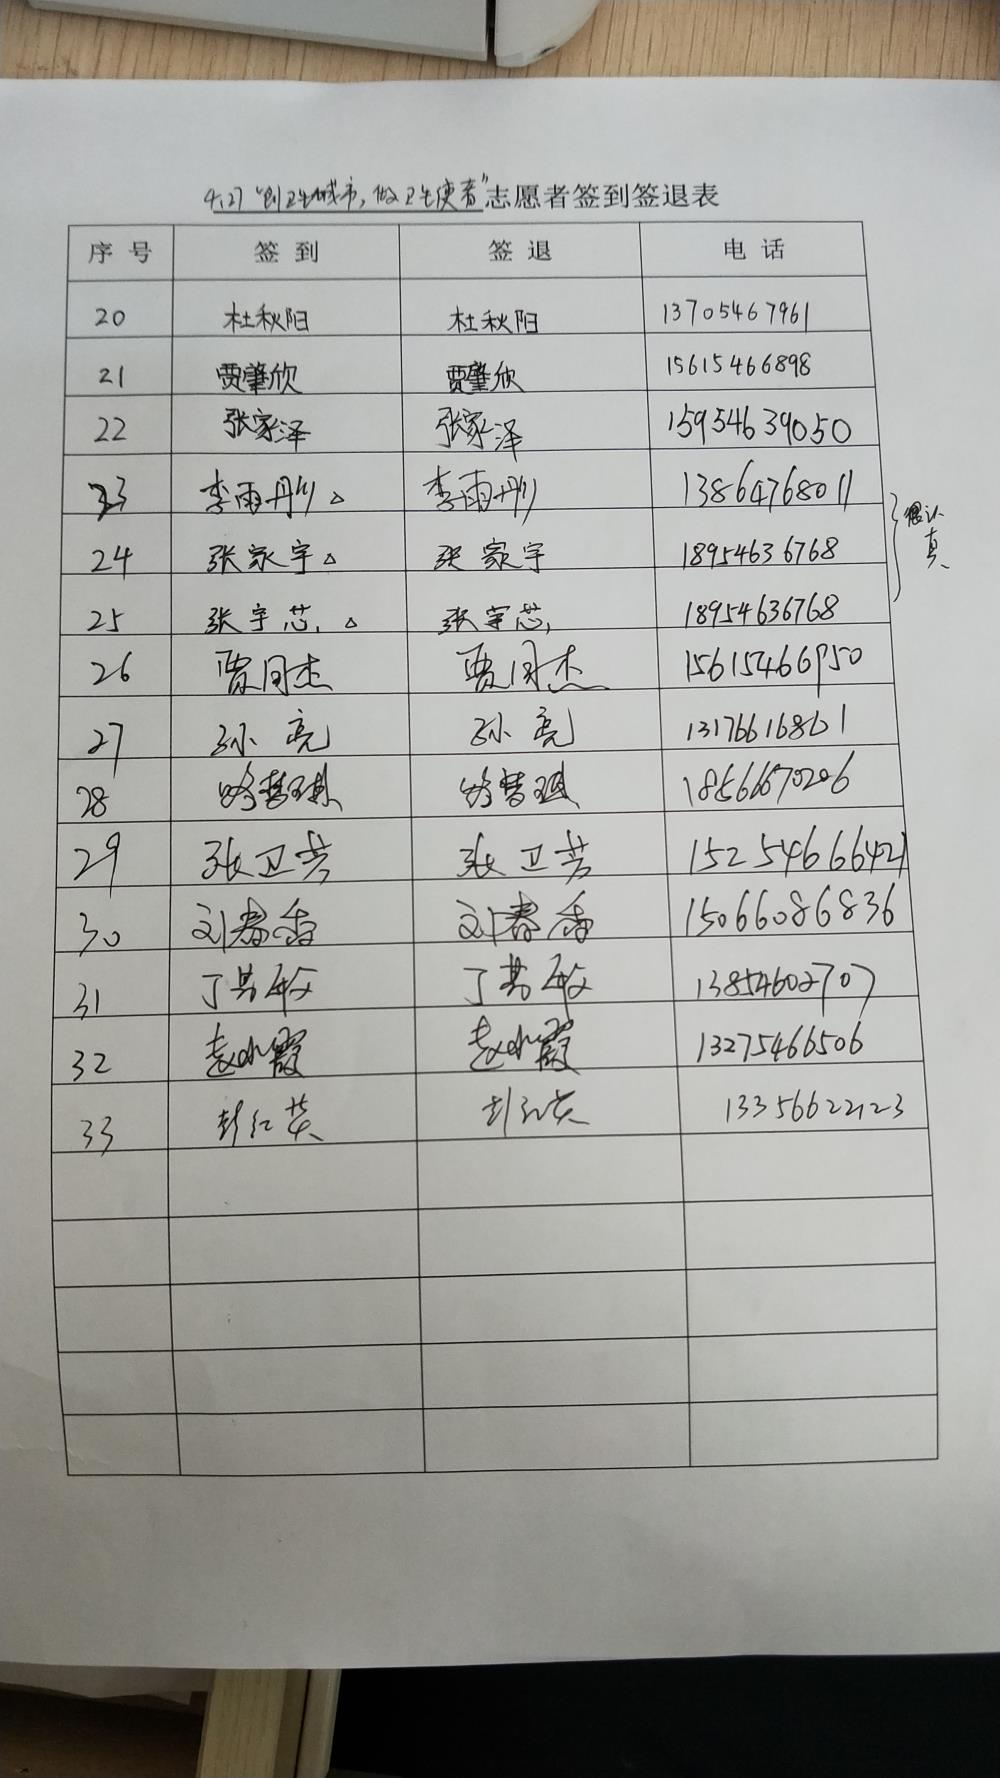 4.27“创卫生城市，做卫生使者”志愿者签到签退表
序号 签到 签退 电话
20 杜秋阳 杜秋阳 13705467961
21 贾肇欣 贾肇欣 15615466898
22 张家泽 张家泽 15954639050
23 李雨彤 △ 李雨彤 13864768011
24 张家宇 △ 张家宇 18954636768
很认真
25 张宇芯 △ 张宇芯 18954636768
26 贾同杰 贾同杰 15615466950
27 孙亮 孙亮 13176616861
28 18566670206
29 张卫芳 张卫芳 15254666421
30 刘春香 刘春香 15066086836
31 丁其敏 丁其敏 13854602707
32 赵小霞 赵小霞 13275466506
33 彭红英 彭红英 13356622123